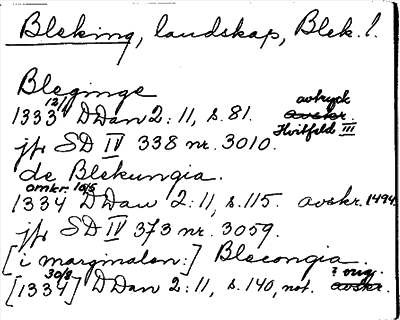 Bleking, landskap, Blek. l.
Bleginge
1333 12/11 DDan 2:11, s. 81. avskr. avtryck Hvitfeld III
jfr SD IV 338 nr. 3010.
de Blekungia.
1334 omkr. 10/5 DDan 2:11, s. 115. avskr. 1494.
jfr SD IV 373 nr. 3059.
[i marginalen:] Blecongia.
[1334] 30/8 DDan 2:11, s. 140, not. avskr. ? orig.